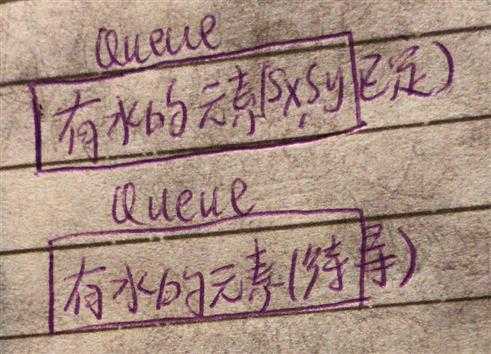 Queue
有水的元素(Sx,Sy已定)
Queue
有水的元素(待寻)